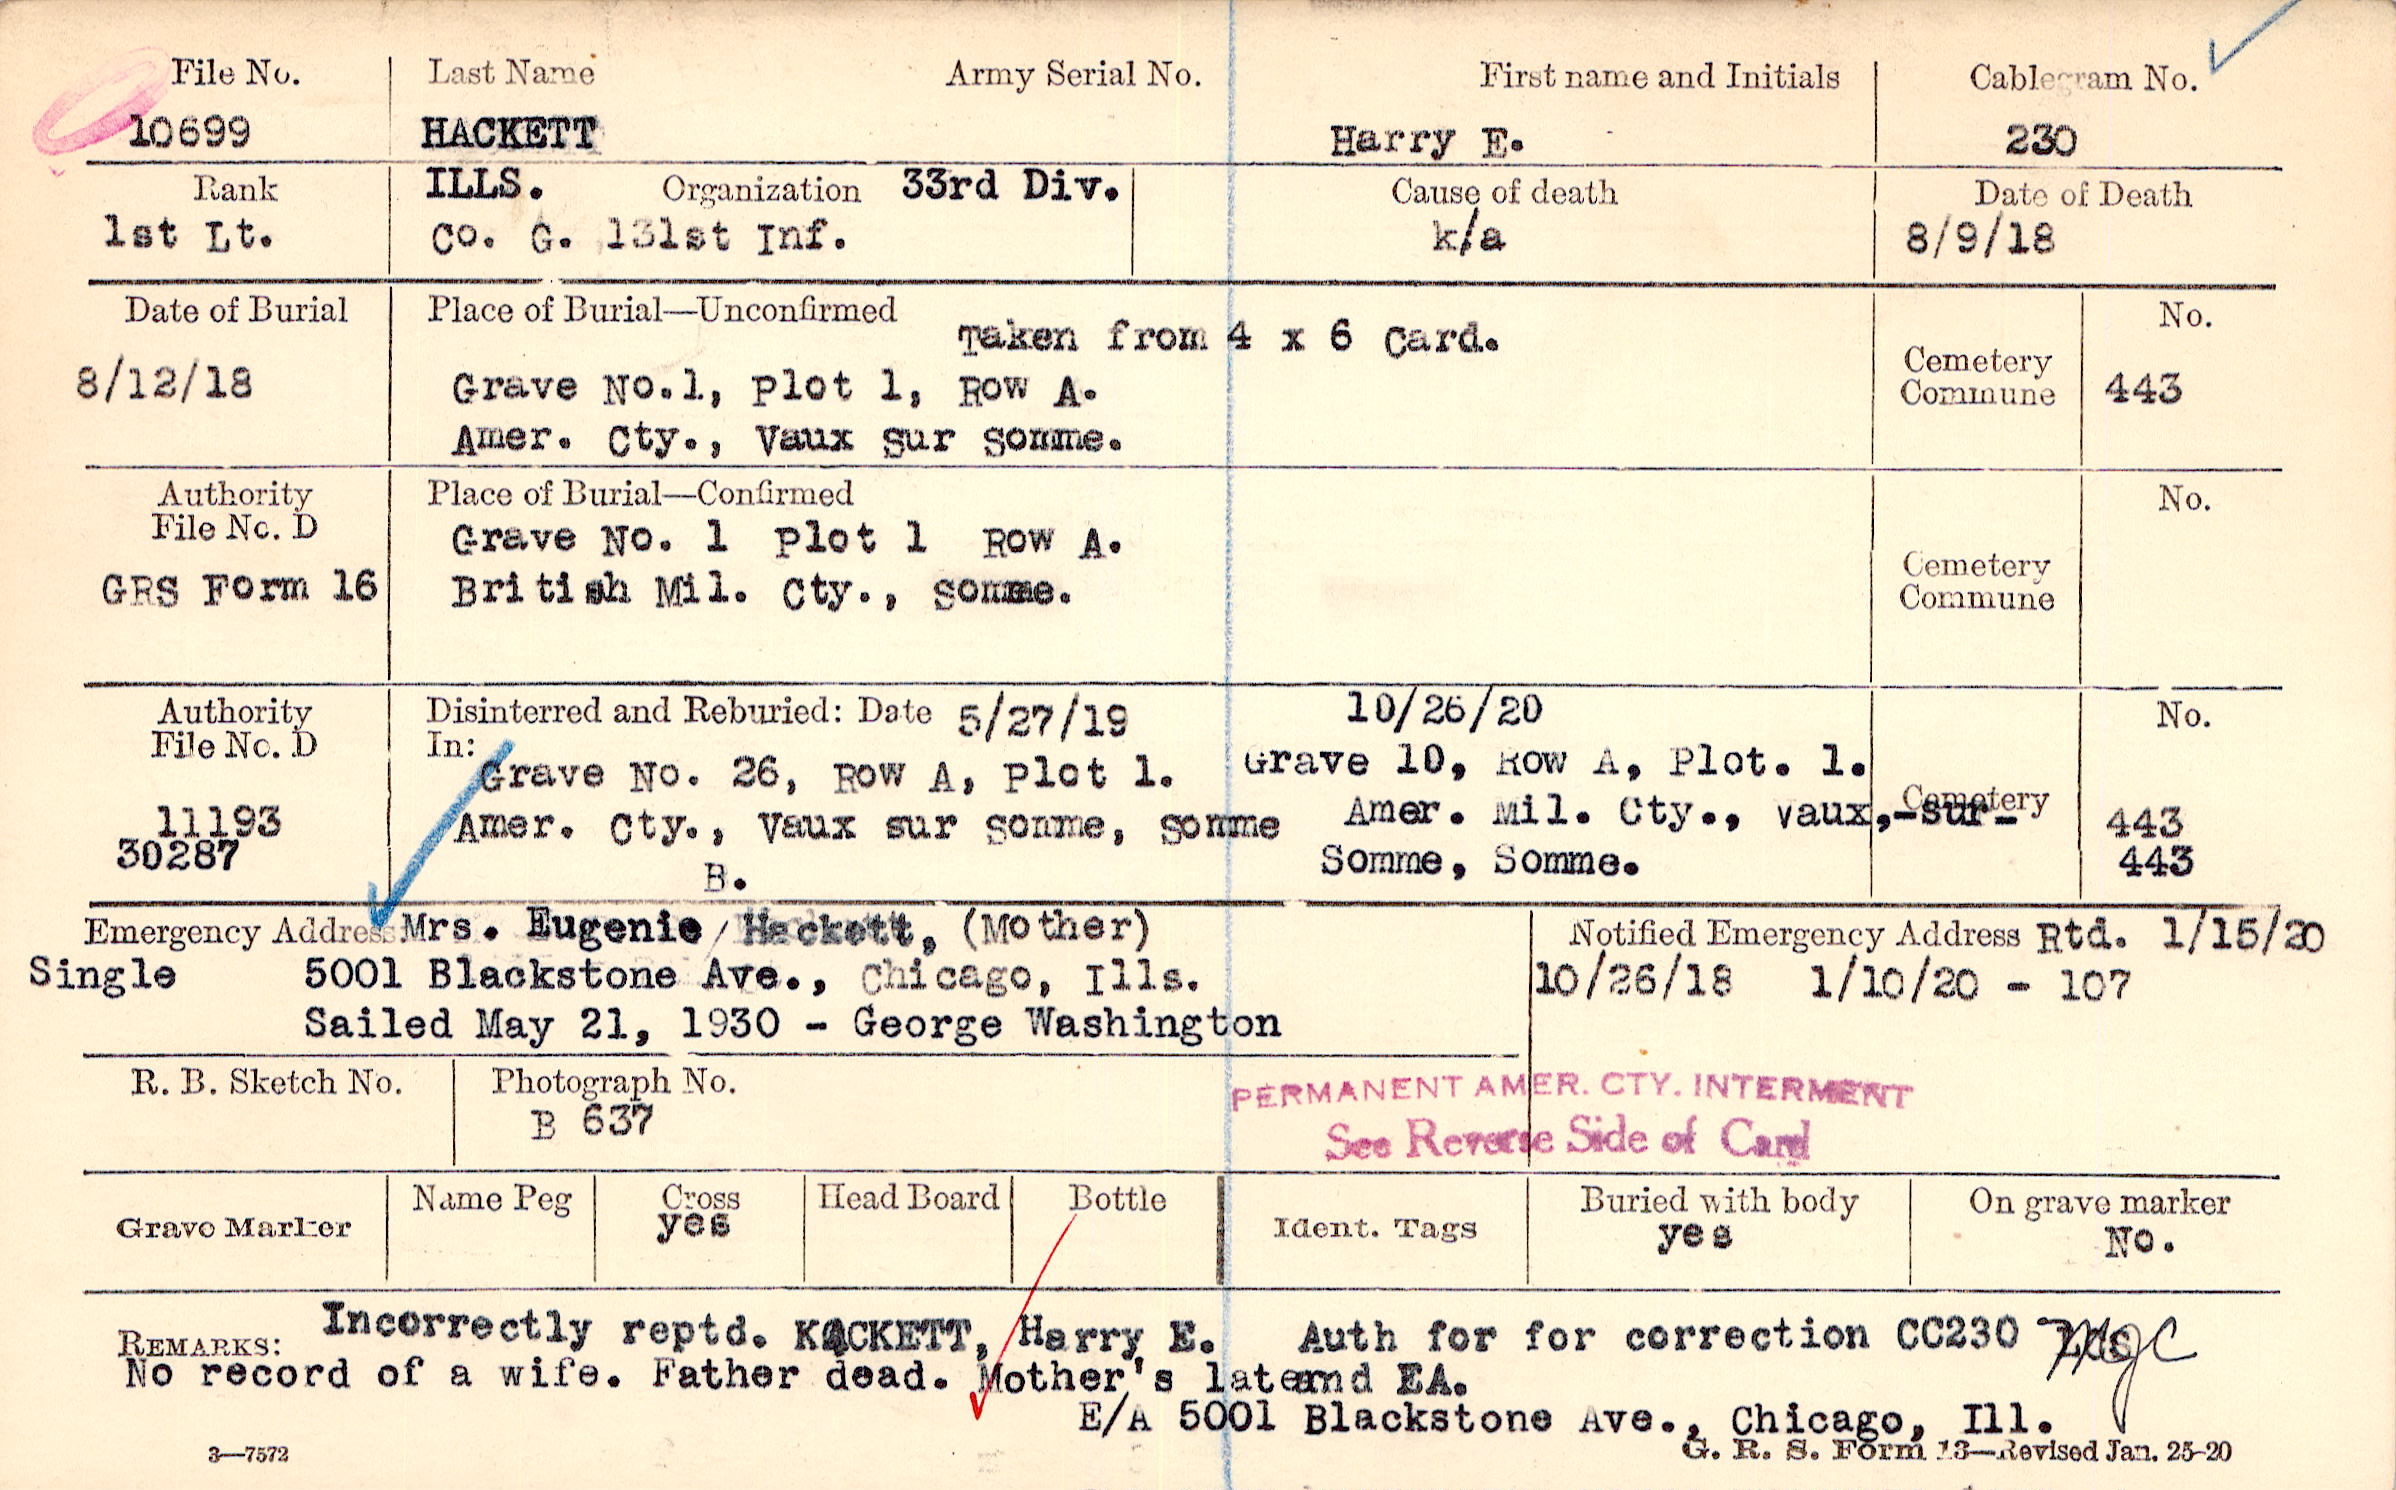 File No. Last Name Army Serial No. First name and Initials Cablegram No.
10699 HACKETT Harry E. 230
Rank ILLS. Organization 33rd Div. Cause of death Date of Death
1st Lt. Co. G. 131st Inf. k/a 8/9/18
Date of Burial Place of Burial—Unconfirmed No.
Taken from 4 x 6 Card.
8/12/18 Grave No.1, Plot 1, Row A. Cemetery Commune 443
Amer. Cty., Vaux sur Somme.
Authority Place of Burial—Confirmed No.
File No. D
Grave No. 1 Plot 1 Row A.
GRS Form 16 British Mil. Cty., Somme. Cemetery Commune
Authority Disinterred and Reburied: Date 5/27/19 10/26/20 No.
File No. D In:
Grave No. 26, Row A, Plot 1. Grave 10, Row A, Plot. 1.
11193 Amer. Cty., Vaux sur Somme, Somme Amer. Mil. Cty., Vaux,-sur- Cemetery 443
30287 Somme, Somme. 443
B.
Emergency Address Mrs. Eugenie / Hackett, (Mother) Notified Emergency Address Rtd. 1/15/20
Single 5001 Blackstone Ave., Chicago, Ills. 10/26/18 1/10/20 - 107
Sailed May 21, 1930 - George Washington
R. B. Sketch No. Photograph No.
B 637
PERMANENT AMER. CTY. INTERMENT
See Reverse Side of Card
Grave Marker Name Peg Cross Head Board Bottle Ident. Tags Buried with body On grave marker
yes yes No.
REMARKS: Incorrectly reptd. KACKETT, Harry E. Auth for for correction CC230
No record of a wife. Father dead. Mother's lat and EA.
E/A 5001 Blackstone Ave., Chicago, Ill.
3—7572 G. R. S. Form 13—Revised Jan. 25-20